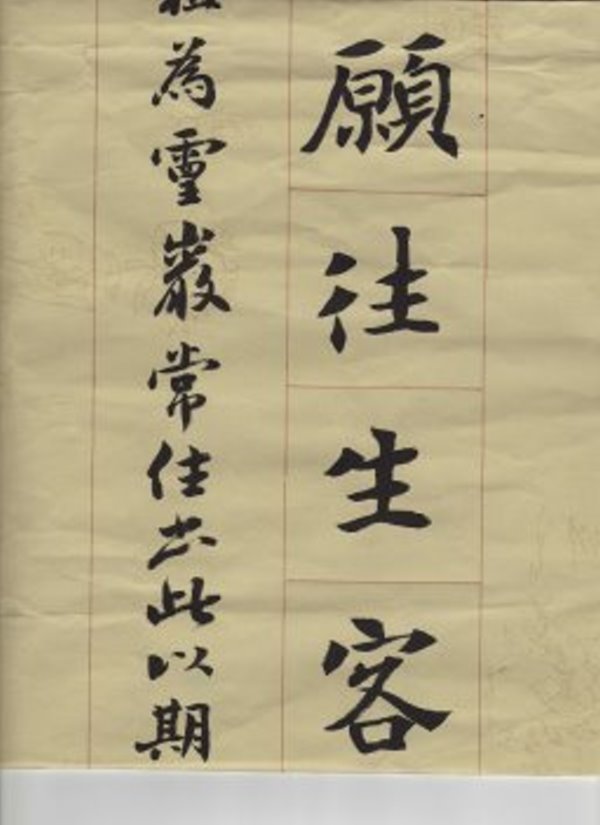 願往生客
為靈巖常住書此以期